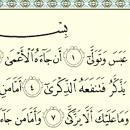 بِسْ
عَبَسَ وَتَوَلَّىٰٓ ١ أَن جَآءَهُ ٱلْأَعْمَىٰ
يَذَّكَّرُ فَتَنفَعَهُ ٱلذِّكْرَىٰٓ ٤ أَمَّا
وَمَا عَلَيْكَ أَلَّا يَزَّكَّىٰ ٧ وَأَمَّا مَن جَآءَ